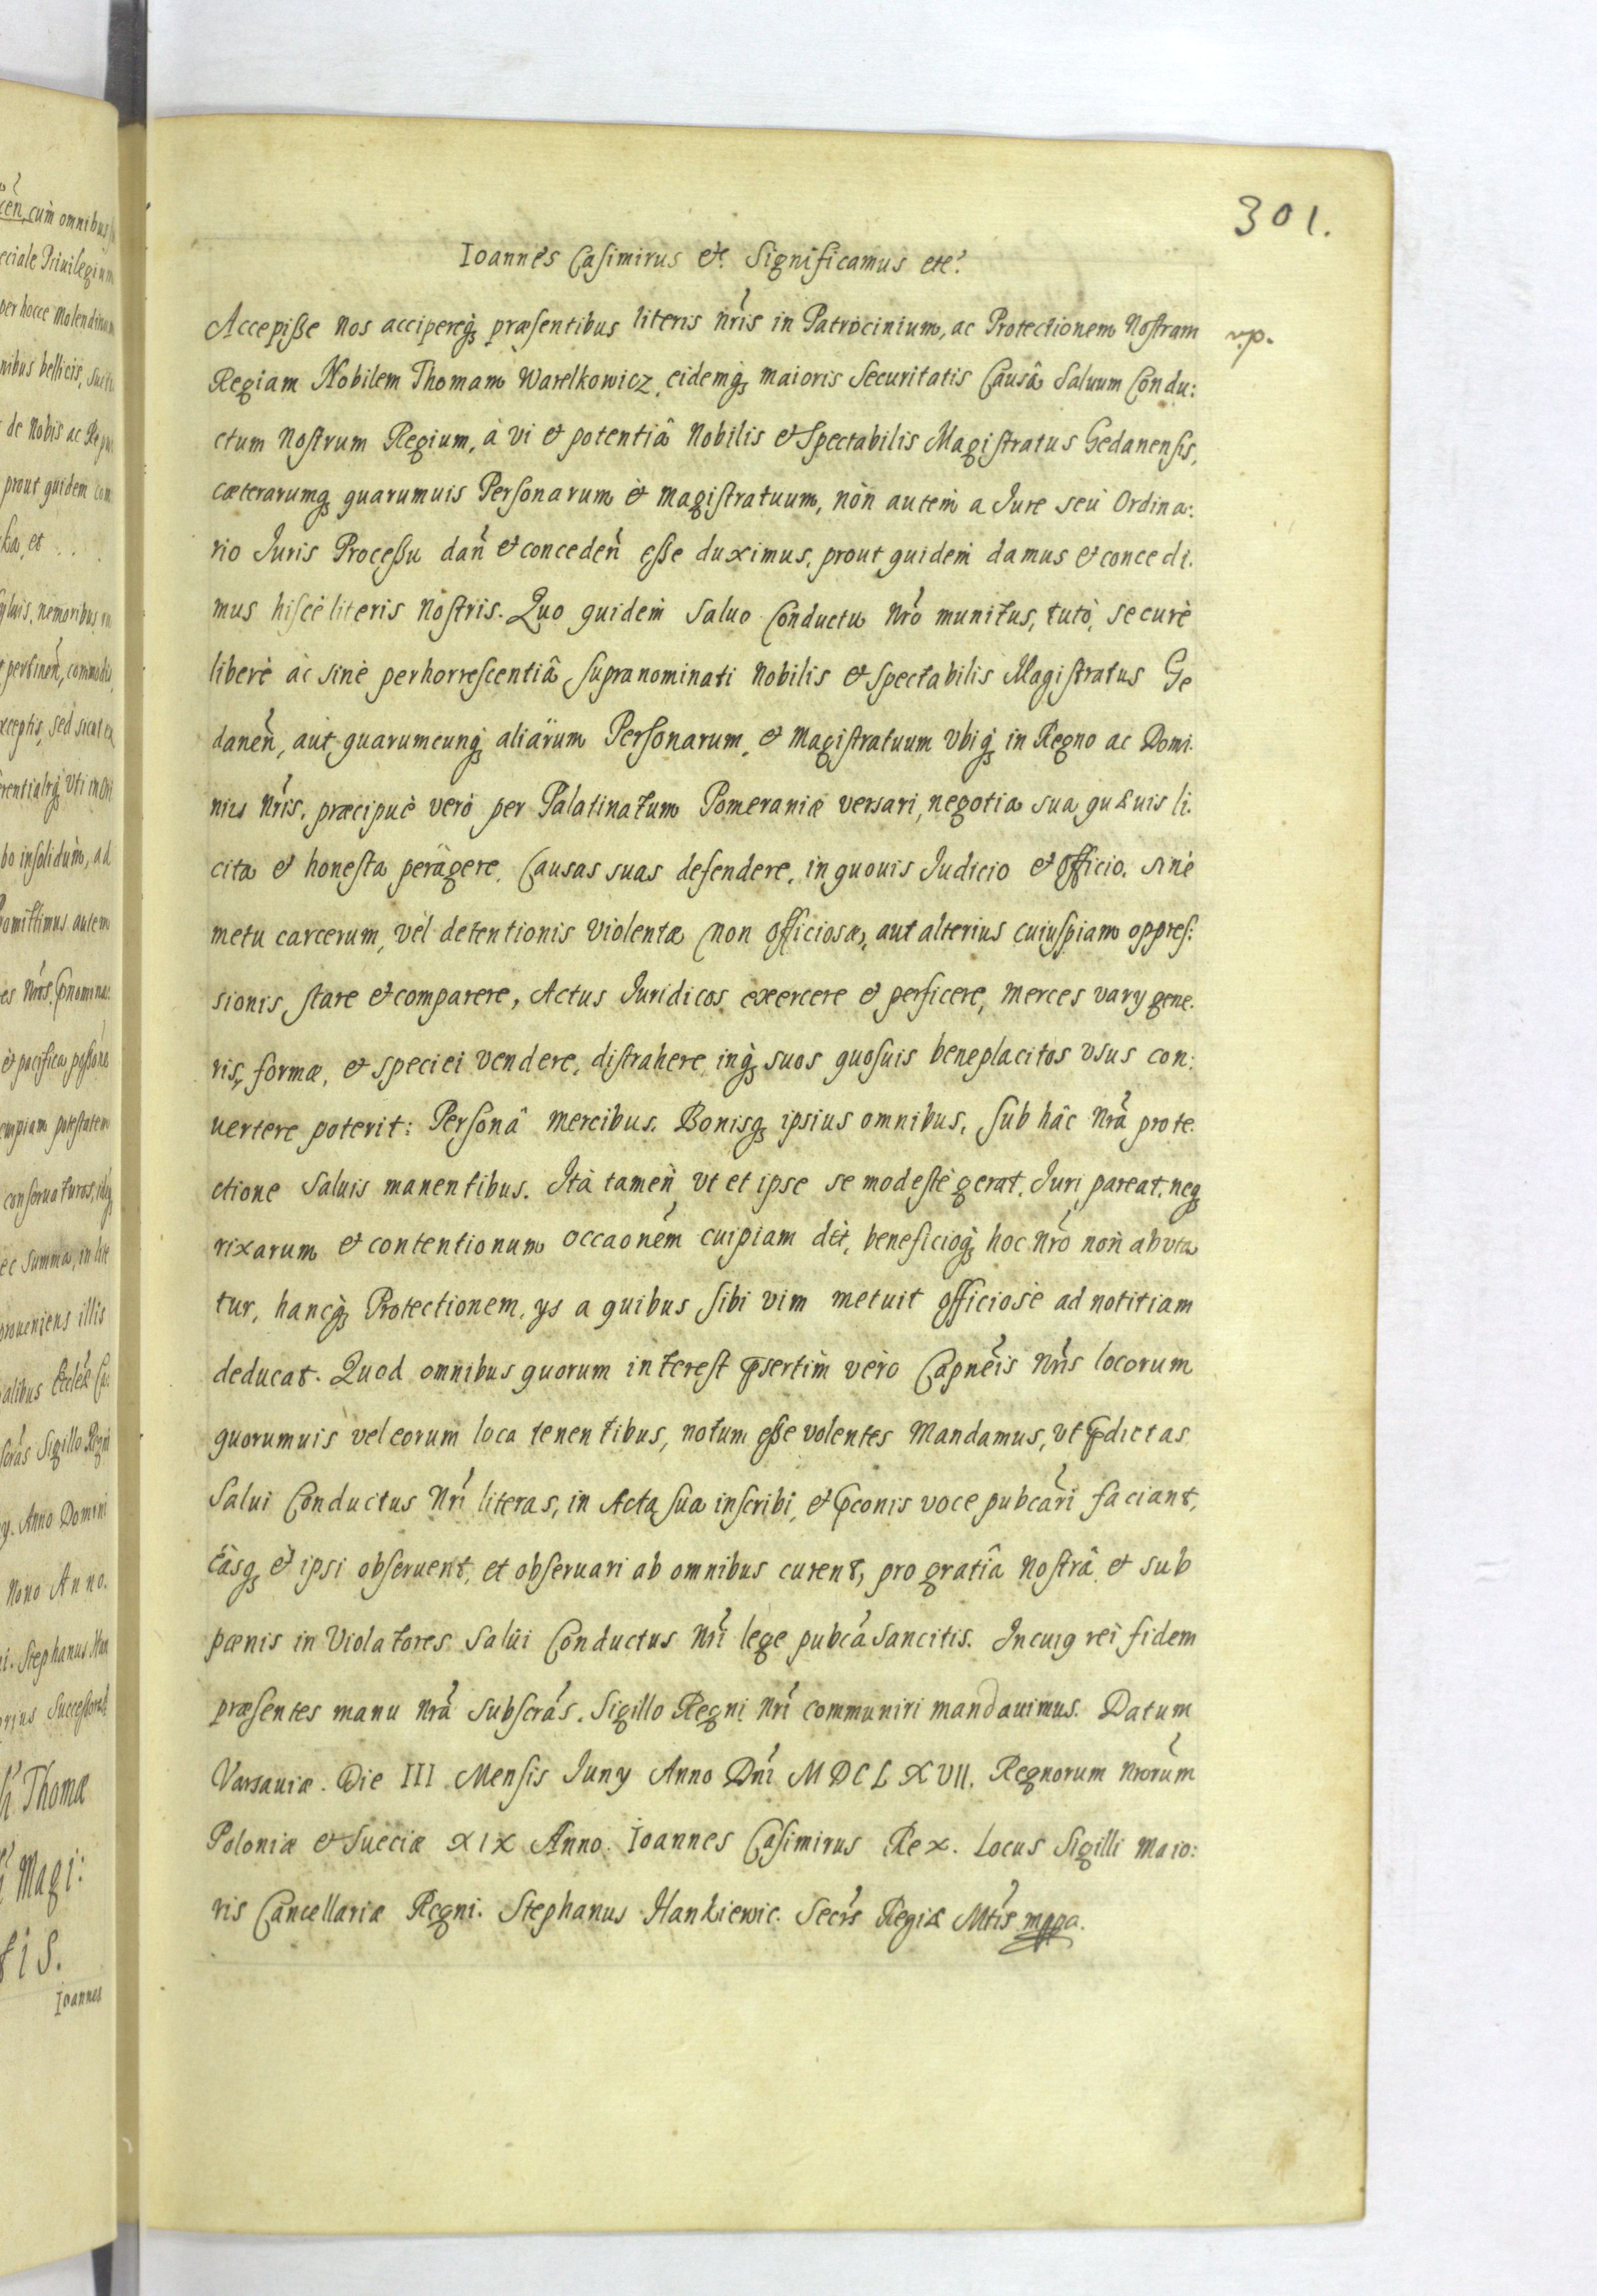 301.
Ioannes Casimirus etc. Significamus etc.
Accepiße Nos accipereq₃ præsentibus literis nr̃is in Patrocinium, ac Protectionem Nostram
v.p.
Regiam Nobilem Thomam Warelkowicz, eidemq₃ maioris Securitatis Causâ Saluum Condu:
ctum Nostrum Regium, à vi et potentiâ Nobilis et Spectabilis Magistratus Gedanensis,
cæterarumq₃ quarumuis Personarum et Magistratuum, non autem a Jure seu Ordina:
rio Juris Proceßu dañ et conceden̄ eße duximus, prout quidem damus et concedi.
mus hisce literis Nostris. Quo quidem Saluo Conductu Nr̃o munitus, tutò, securè
liberè ac sine perhorrescentiâ, supranominati Nobilis et Spectabilis Magistratus Ge
daneñ, aut quarumcunq₃ aliarum Personarum, et Magistratuum Vbiq₃ in Regno ac Domi.
nijs Nr̃is, præcipuè verò per Palatinatum Pomeraniæ versari, negotia sua quæuis li.
cita et honesta peragere, Causas suas defendere, in quouis Judicio et Officio, sine
metu carcerum, vel detentionis violentæ non officiosæ, aut alterius cuiuspiam oppres:
sionis, stare et comparere, Actus Juridicos exercere et perficere, Merces varÿ gene.
ris, formæ, et speciei vendere, distrahere, inq₃ suos quosuis beneplacitos vsus con:
uertere poterit: Personâ Mercibus, Bonisq₃ ipsius omnibus, sub hâc Nr̃a prote.
ctione Saluis manentibus. Ità tamen, vt et ipse se modestè gerat, Juri pareat, neq₃
rixarum et contentionum occãonem cuipiam det, beneficioq₃ hoc Nr̃o non abuta
tur, hancq₃ Protectionem, ÿs a quibus sibi vim metuit officiosè ad notitiam
deducat. Quod omnibus quorum interest p̃sertim verò Capneĩs Nr̃is locorum
quorumuis vel eorum loca tenentibus, notum eße volentes Mandamus, vt p̃dictas
Salui Conductus Nr̃i literas, in Acta sua inscribi, et p̃conis voce pubcãri faciant,
easq₃ et ipsi obseruent, et obseruari ab omnibus curent, pro gratiâ Nostrâ et sub
pænis in Violatores Salui Conductus Nr̃i lege pubcã sancitis. In cuiq rei fidem
præsentes manu Nr̃a Subscrãs, Sigillo Regni Nr̃i communiri mandauimus. Datum
Varsauiæ. Die III Mensis Junÿ Anno Dñi MDCLXVII. Regnorum Nrorũm
Poloniæ et Sueciæ XIX Anno. Ioannes Casimirus Rex. Locus Sigilli Maio:
ris Cancellariæ Regni. Stephanus Hankiewic. Secr̃s Regiæ Mtĩs mppa.